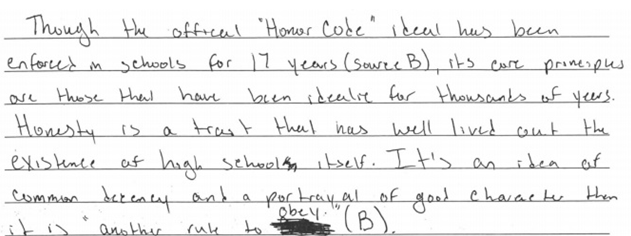 Though the offical "Honor Code" ideal has been
enforced in schools for 17 years (source B), its core principles
are those that have been idealic for thousands of years.
Honesty is a trait that has well lived out the
existence of high school itself. It's an idea of
common decency and a portrayal of good character then
it is "another rule to obey." (B).